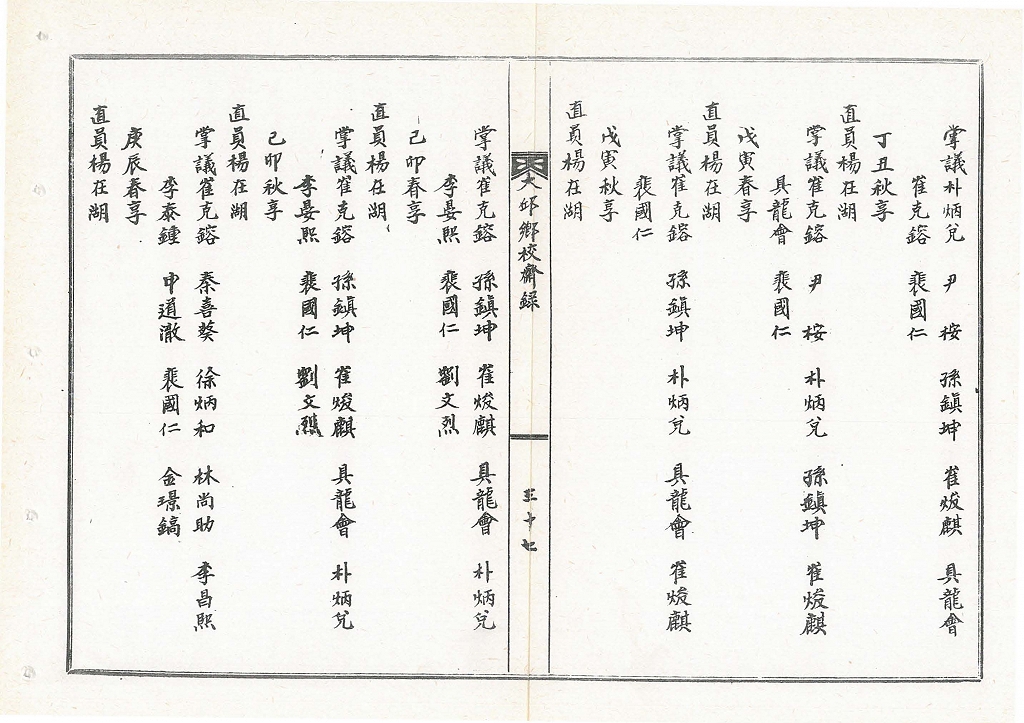 掌議朴炳兌 尹桉 孫鎮坤 崔焌麒 具龍會
崔克鎔 裴國仁
丁丑秋享
直員楊在湖
掌議崔克鎔 尹桉 朴炳兌 孫鎮坤 崔焌麒
具龍會 裴國仁
戊寅春享
直員楊在湖
掌議崔克鎔 孫鎮坤 朴炳兌 具龍會 崔焌麒
裴國仁
戊寅秋享
直員楊在湖
大邱鄉校齋録 三十七
掌議崔克鎔 孫鎮坤 崔焌麒 具龍會 朴炳兌
李晏熙 裴國仁 劉文烈
己卯春享
直員楊在湖
掌議崔克鎔 孫鎮坤 崔焌麒 具龍會 朴炳兌
李晏熙 裴國仁 劉文烈
己卯秋享
直員楊在湖
掌議崔克鎔 秦喜葵 徐炳和 林尚助 李昌熙
李泰鍾 申道澈 裴國仁 金璟鎬
庚辰春享
直員楊在湖